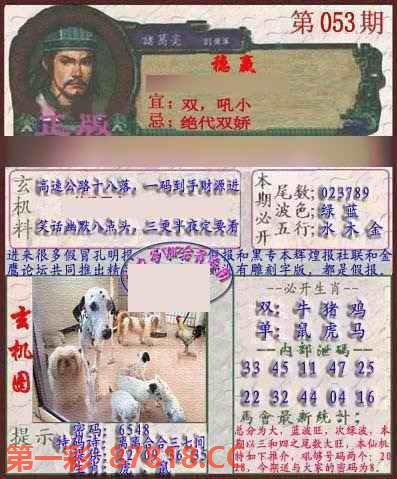 第053期
諸葛亮
稳赢
宜：双，吼小
忌：绝代双娇
正版
玄机料
高速公路十八落，一码到手财源进
笑话幽默八点头，三更半夜定要看
本期必开
尾数：023789
波色：绿 蓝
五行：水 木 金
进来很多假冒孔明报
报和黑专本辉煌报社联和金
鹰论坛共同推出精
有雕刻字版，都是假报
玄机图
必开生肖
双：牛 猪 鸡
单：鼠 虎 马
内部泄码
33 45 11 47 25
22 32 44 04 16
馬會最新統计：
总分为大，蓝波旺，次绿波，本
期以三和四之尾数大旺，本仙机
特如下推介，吼够号码两个：20
28，今期道与大家的密码为8.
提示
密码：6548
特码诗：
离离合合三七间
第一彩：87818.CC